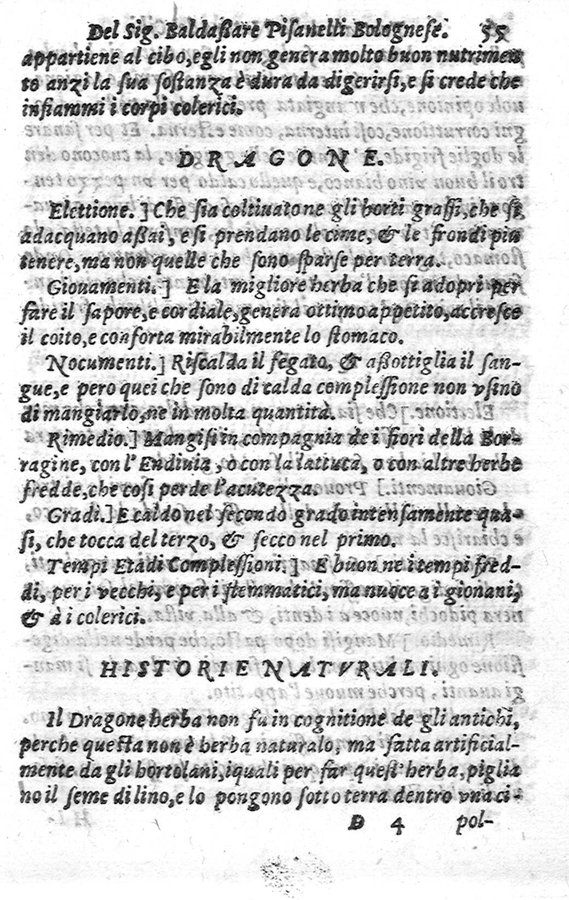 Del Sig. Baldaßare Pisanelli Bolognese. 55
appartiene al cibo, egli non genera molto buon nutrimen
to anzi la sua sostanza è dura da digerirsi, e si crede che
infiammi i corpi colerici.
DRAGONE.
Elettione. ] Che sia coltiuato ne gli horti grassi, che si
adacquano aßai, e si prendano le cime, & le frondi più
tenere, ma non quelle che sono sparse per terra.
Giouamenti. ] E la migliore herba che si adopri per
fare il sapore, e cordiale, genera ottimo appetito, accresce
il coito, e conforta mirabilmente lo stomaco.
Nocumenti. ] Riscalda il fegato, & aßottiglia il san-
gue, e pero quei che sono di calda complessione non vsino
di mangiarlo, ne in molta quantità.
Rimedio. ] Mangisi in compagnia de i fiori della Bor-
ragine, con l'Endiuia, o con la lattuca, o con altre herbe
fredde, che cosi perde l'acutezza.
Gradi. ] E caldo nel secondo grado intensamente qua-
si, che tocca del terzo, & secco nel primo.
Tempi Etadi Complessioni. ] E buon ne i tempi fred-
di, per i vecchi, e per i flemmatici, ma nuoce a i giouani,
& à i colerici.
HISTORIE NATVRALI.
Il Dragone herba non fu in cognitione de gli antichi,
perche questa non è herba naturalo, ma fatta artificial-
mente da gli hortolani, iquali per far quest' herba, piglia
no il seme di lino, e lo pongono sotto terra dentro vna ci-
D 4 pol-